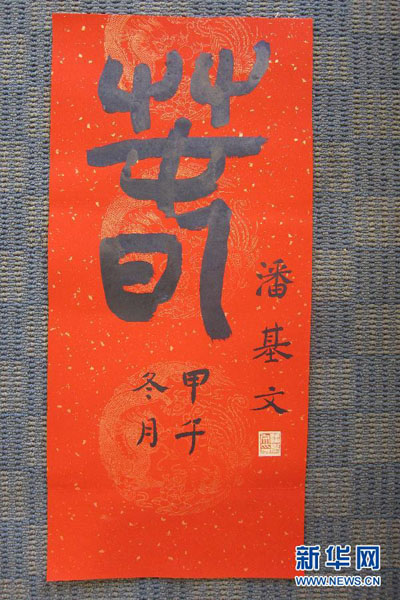 春
潘基文
甲午
冬月
新华网
WWW.NEWS.CN